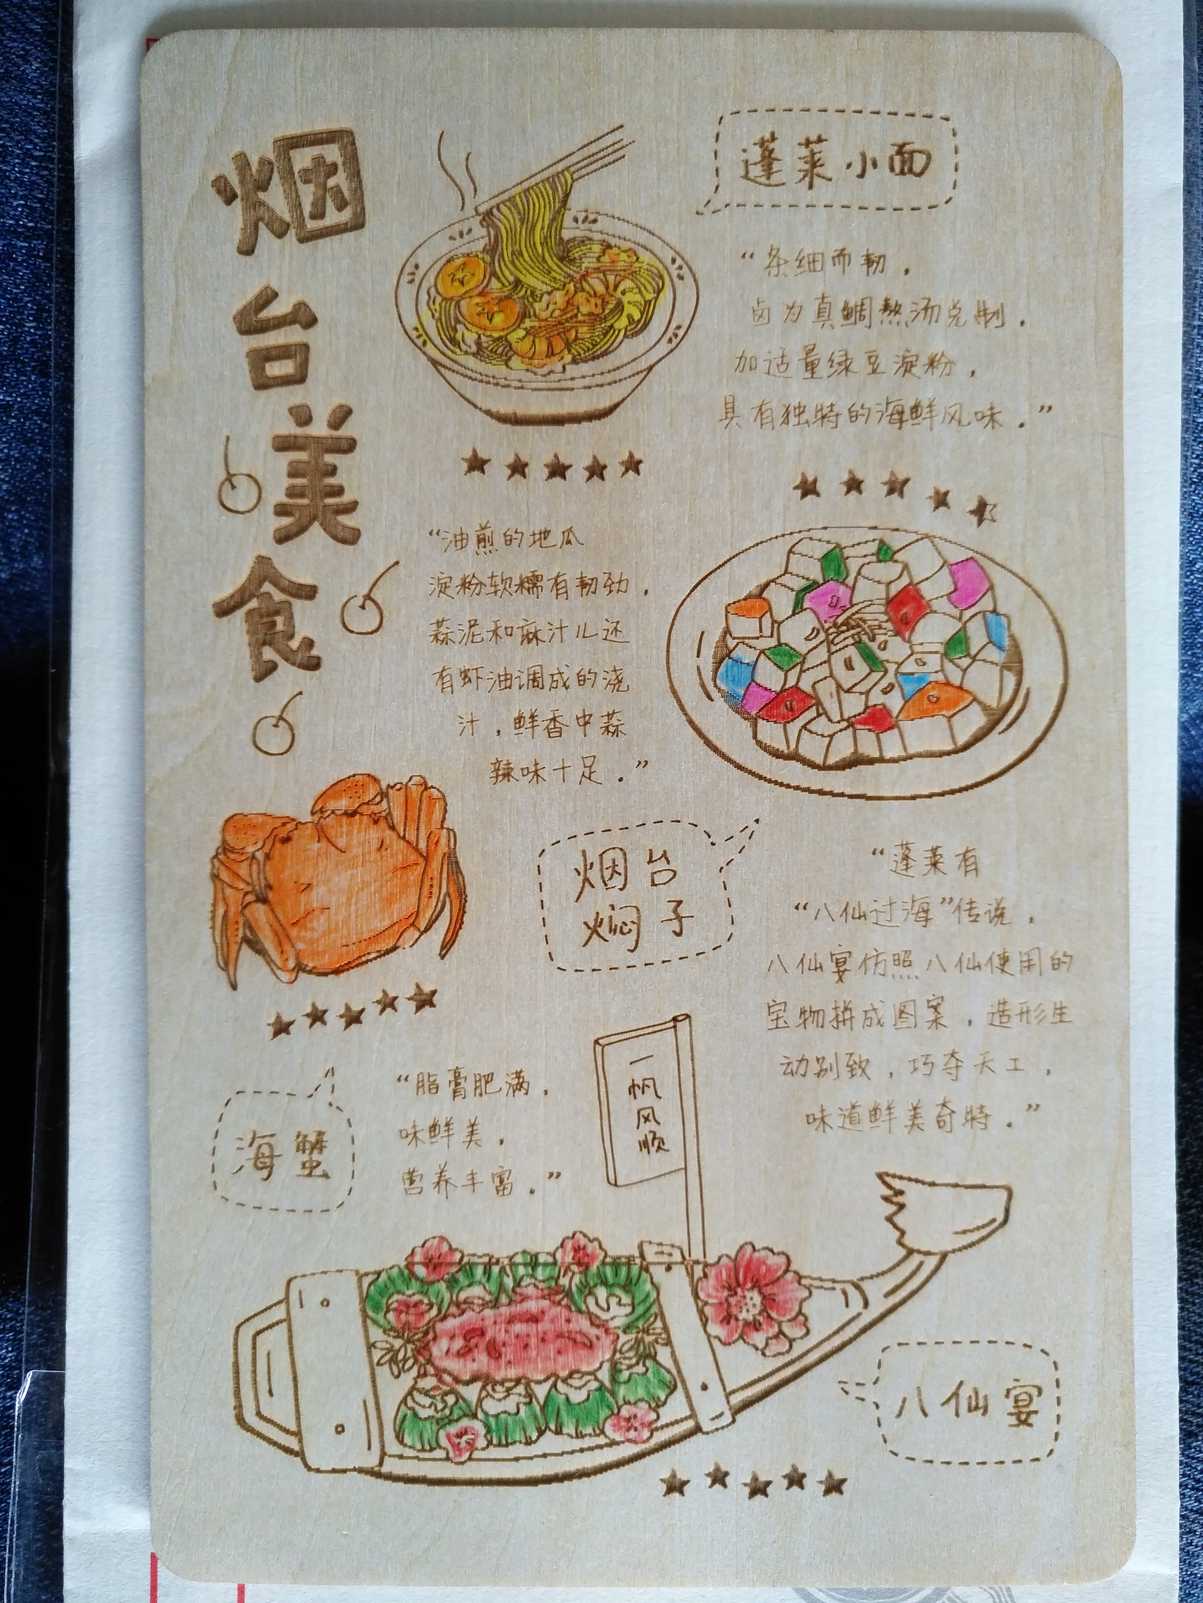 烟台美食
蓬莱小面
“条细而韧，
卤为真鲷熬汤兑制．
加适量绿豆淀粉，
具有独特的海鲜风味．”
“油煎的地瓜
淀粉软糯有韧劲．
蒜泥和麻汁儿还
有虾油调成的浇
汁，鲜香中蒜
辣味十足．”
烟台
焖子
海蟹
“脂膏肥满．
味鲜美．
营养丰富．”
“蓬莱有
“八仙过海”传说．
八仙宴仿照八仙使用的
宝物拼成图案，造形生
动别致，巧夺天工，
味道鲜美奇特．”
一帆风顺
八仙宴